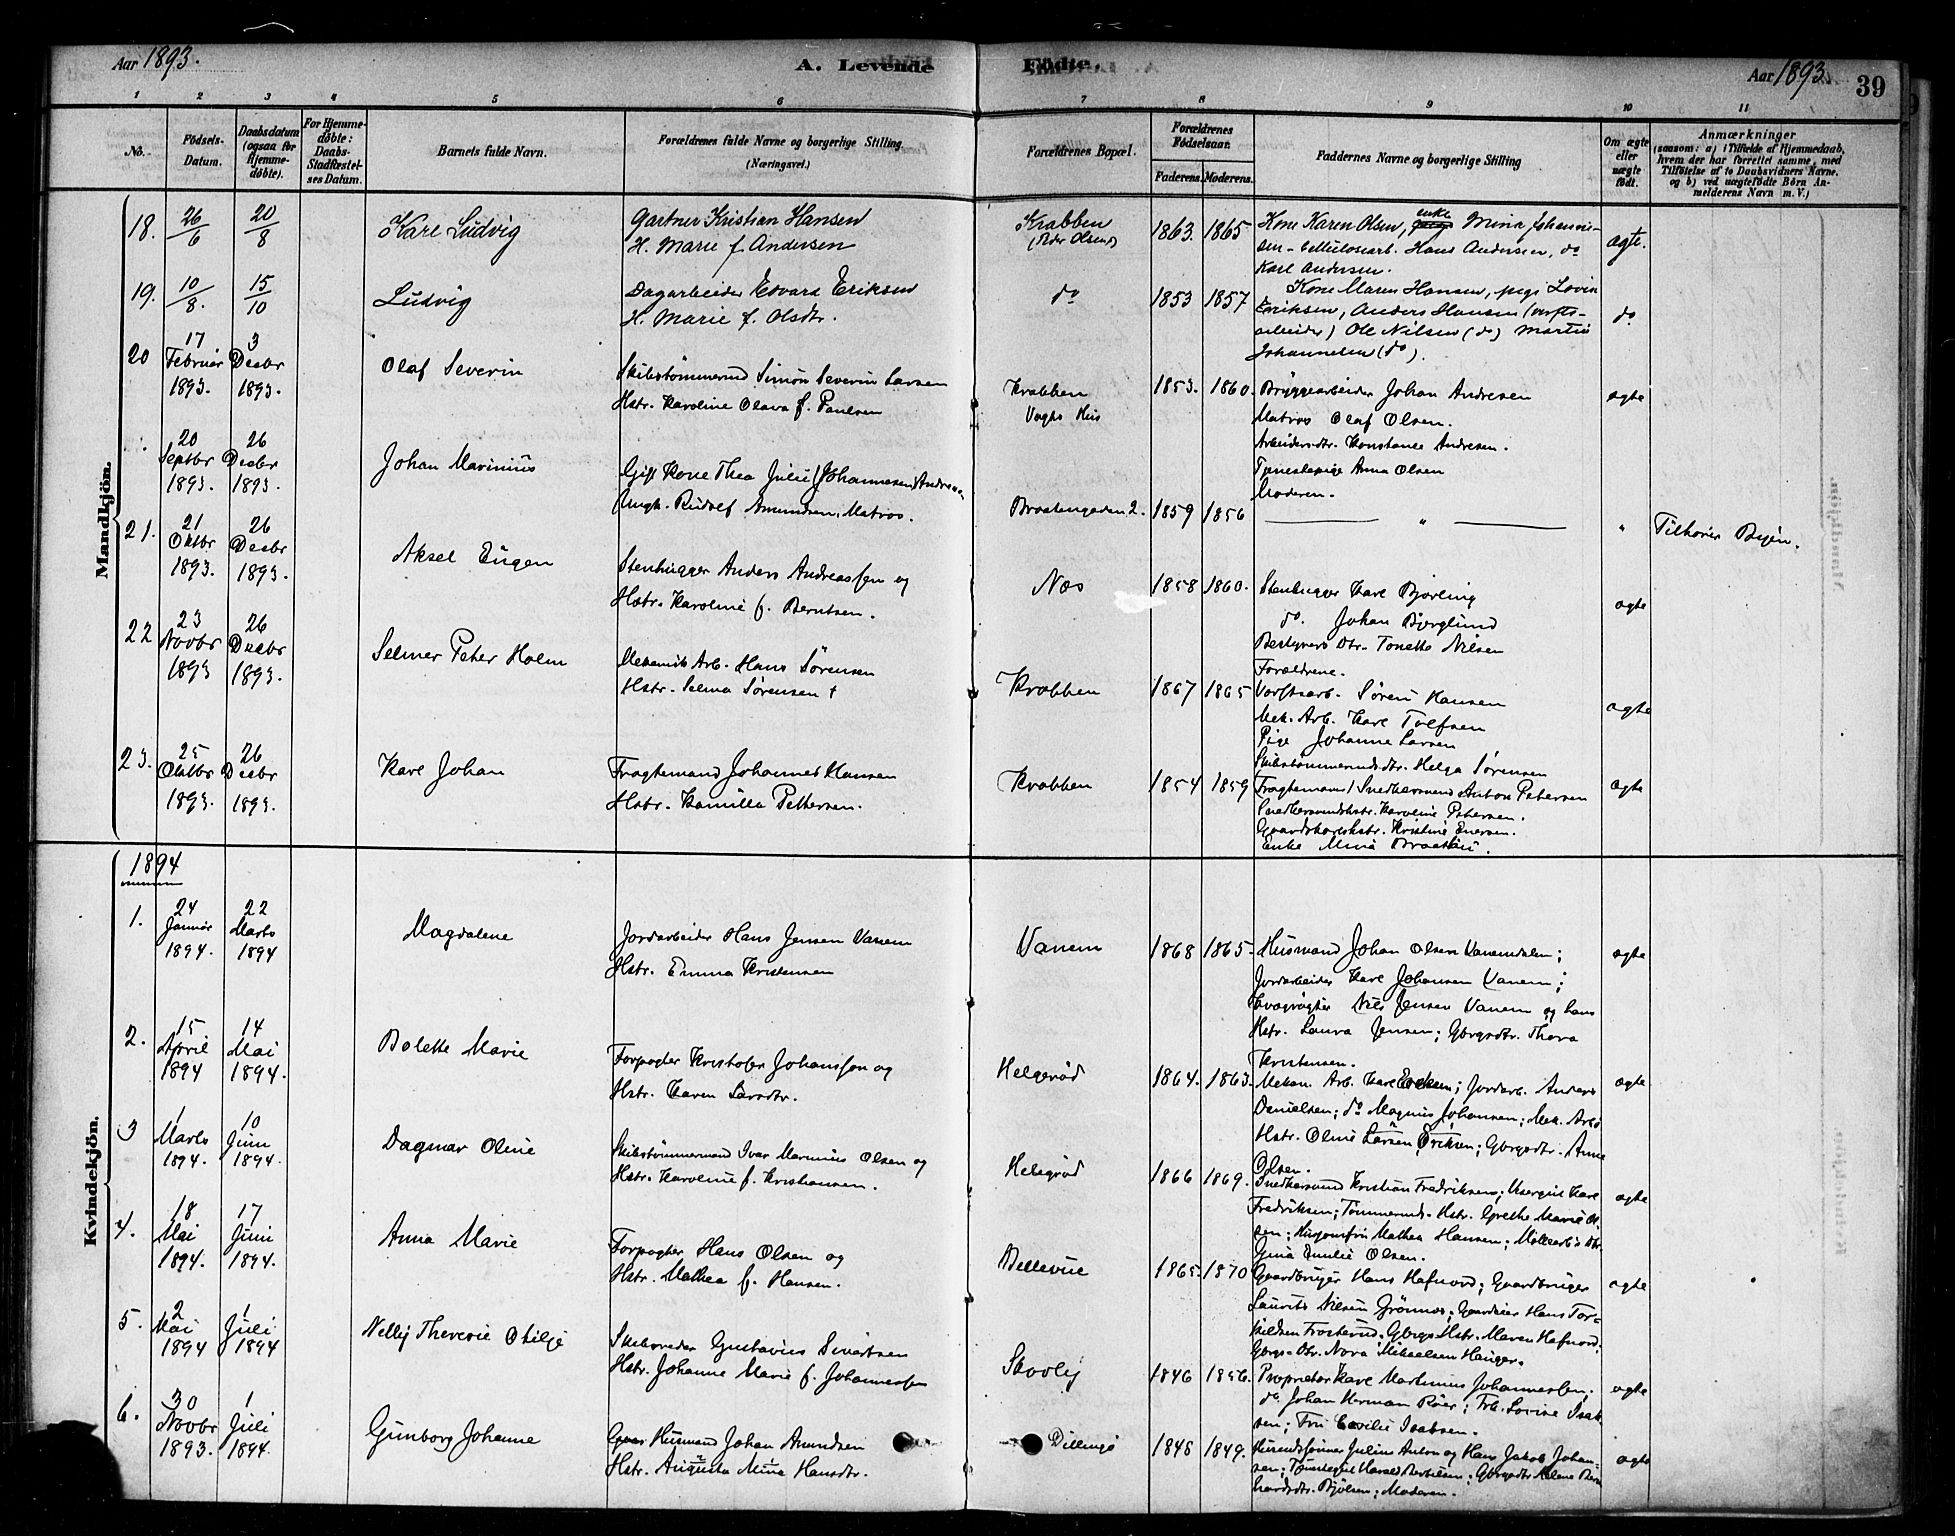 Aar 1893.
A. Levende
Födte.
Aar 1893. 39
1 2 3 4 5 6 7 8 9 10 11
No.
Födsels-
Datum.
Daabsdatum
(ogsaa for
Hjemme-
döbte).
For Hjemme-
döbte:
Daabs-
Stadfæstel-
ses Datum.
Barnets fulde Navn.
Forældrenes fulde Navne og borgerlige Stilling
(Næringsvei.)
Forældrenes Bopæl.
Forældrenes
Födselsaar.
Faderens. Moderens.
Faddernes Navne og borgerlige Stilling
Om ægte
eller
uægte
födt.
Anmærkninger
(saasom: a) i Tilfælde af Hjemmedaab,
hvem der har forrettet samme, med
Tilföielse af to Daabsvidners Navne.
og b) ved uægtefödte Börn An-
melderens Navn m. V.)
Mandkjön.
18. 26/6 20/8 Karl Ludvig
Gartner Kristian Hansen
H. Marie f. Andersen
Krabben
(Peder Olsens)
1863. 1865
Kone Karen Olsen, enke Mina Johanne-
sen - Cellulosearb. Hans Andersen, do
Karl Andersen.
ægte.
19. 10/8. 15/10 Ludvig
Dagarbeider Edvard Eriksen
H. Marie f. Olsdtr.
do 1853 1857
Kone Maren Hansen, pige Lovin
Eriksen, Anders Hansen (værfts-
arbeider) Ole Nilsen (do) Martin
Johannesen (do).
do
20 17 Februar 1893. 3 Decbr 1893.
Olaf Severin
Skibstömmermd Simon Severin Larsen
Hstr. Karoline Olava f. Paulsen
Krabben
Vogts Hus
1853. 1860.
Bryggearbeider Johan Andresen
Matros Olaf Olsen.
Arbeidersdtr. Konstance Andresen.
Tjenestepige Anna Olsen
Moderen.
ægte
20 Septbr 1893. 26 Decbr 1893.
Johan Marinius
Gift Kone Thea Julie (Johannesen) Andresen
Ungk. Rudolf Amundsen, Matros.
Braatengaden 2. 1859 1856
— " — "
Tilhörer Byen.
21. 21 Oktbr 1893. 26 Decbr 1893.
Aksel Eugen
Stenhugger Anders Andreassen og
Hstr. Karoline f. Berntsen.
Næs 1858 1860.
Stenhugger Karl Björling
do. Johan Bjerglund
Bestyrers Dtr. Tonette Nilsen
Forældrene.
ægte
22 23 Novbr 1893 26 Decbr 1893.
Selmer Peter Holm
Mekanisk Arb. Hans Sörensen
Hstr. Selma Sörensen †
Krabben 1867 1865
Værftsarb. Sören Hansen
Mek. Arb. Karl Tollefsen
Pige Johanne Larsen
Skibstömmermdsdtr. Helga Sörensen
ægte
23. 25 Oktbr 1893. 26 Decbr 1893.
Karl Johan
Fragtemand Johannes Hansen
Hstr. Kamilla Pettersen.
Krabben 1854 1859
Fragtemand / Snedkersvend Anton Petersen
Snedkersvendshstr. Karoline Petersen.
Gaardskarlshstr. Kristine Enersen.
Enke Mina Braathen.
ægte
Kvindekjön.
1894
1. 24 Januar 1894. 22 Marts 1894
Magdalene
Jordarbeider Hans Jensen Vanem
Hstr. Emma Kristensen
Vanem 1868 1865.
Husmand Johan Olsen Vanemdalen;
Jordarbeider Karl Johansen Vanem;
Kvægrögter Nils Jensen Vanem og hans
Hstr. Laura Jensen; Gbrgsdtr. Thora
Kristensen.
ægte
2. 15 April 1894 14 Mai 1894.
Bolette Marie
Forpagter Kristofer Johanssen og
Hstr. Karen Larsdtr.
Helgeröd 1864. 1863.
Mekan. Arb. Karl Eriksen; Jordarb. Anders
Danielsen; do Magnus Johansen; Mek. Arbs
Hstr. Oline Larsen Eriksen; Gbrgsdtr. Anne
Olsen.
ægte
3 1 Marts 1894. 10 Juni 1894.
Dagmar Oline
Skibstömmermand Ivar Marinius Olsen og
Hstr. Karoline f. Kristiansen.
Helgeröd 1866 1869.
Snedkersvend Kristian Fredriksen; Usergut Karl
Fredriksen; Tömmermds. Hstr. Grethe Marie Ol-
sen; Mathea Hansen; Möllearb's Dtr.
Gina Emilie Olsen.
ægte
4. 18 Mai 1894. 17 Juni 1894.
Anna Marie
Forpagter Hans Olsen og
Hstr. Mathea f. Hansen.
Bellevue 1865. 1870
Gaardbruger Hans Hafnord; Gaardbruger
Laurits Nilsen Grönnes; Gaardeier Hans Tor-
kildsen Frosterud. Gbrgs Hstr. Maren Hafnord;
Gbrgs-Dtr. Nora Mikaelsen Hauger.
ægte
5. 2 Mai 1894 1 Juli 1894
Nelly Therese Otilje
Skibsreder Gustavus Sivertsen
Hstr. Johanne Marie f. Johannessen
Skovly 1846 1856.
Proprietær Karl Martinius Johannessen;
do Johan Herman Röer; Frk. Lovise Isak-
sen; Fru Cecilie Isaksen.
ægte
6. 30 Novbr 1893. 1 Juli 1894.
Gunborg Johanne
Husmand Johan Amundsen
Hstr. Augusta Mina Hansdtr.
Dillingö 1848 1849.
Husmdssönner Julius Anton og Hans Jakob Johan-
sen; Tjenestegut Harald Bertelsen; Gbrgsdtr Helene Bern-
hardsdtr. Bjölsen; Moderen.
ægte